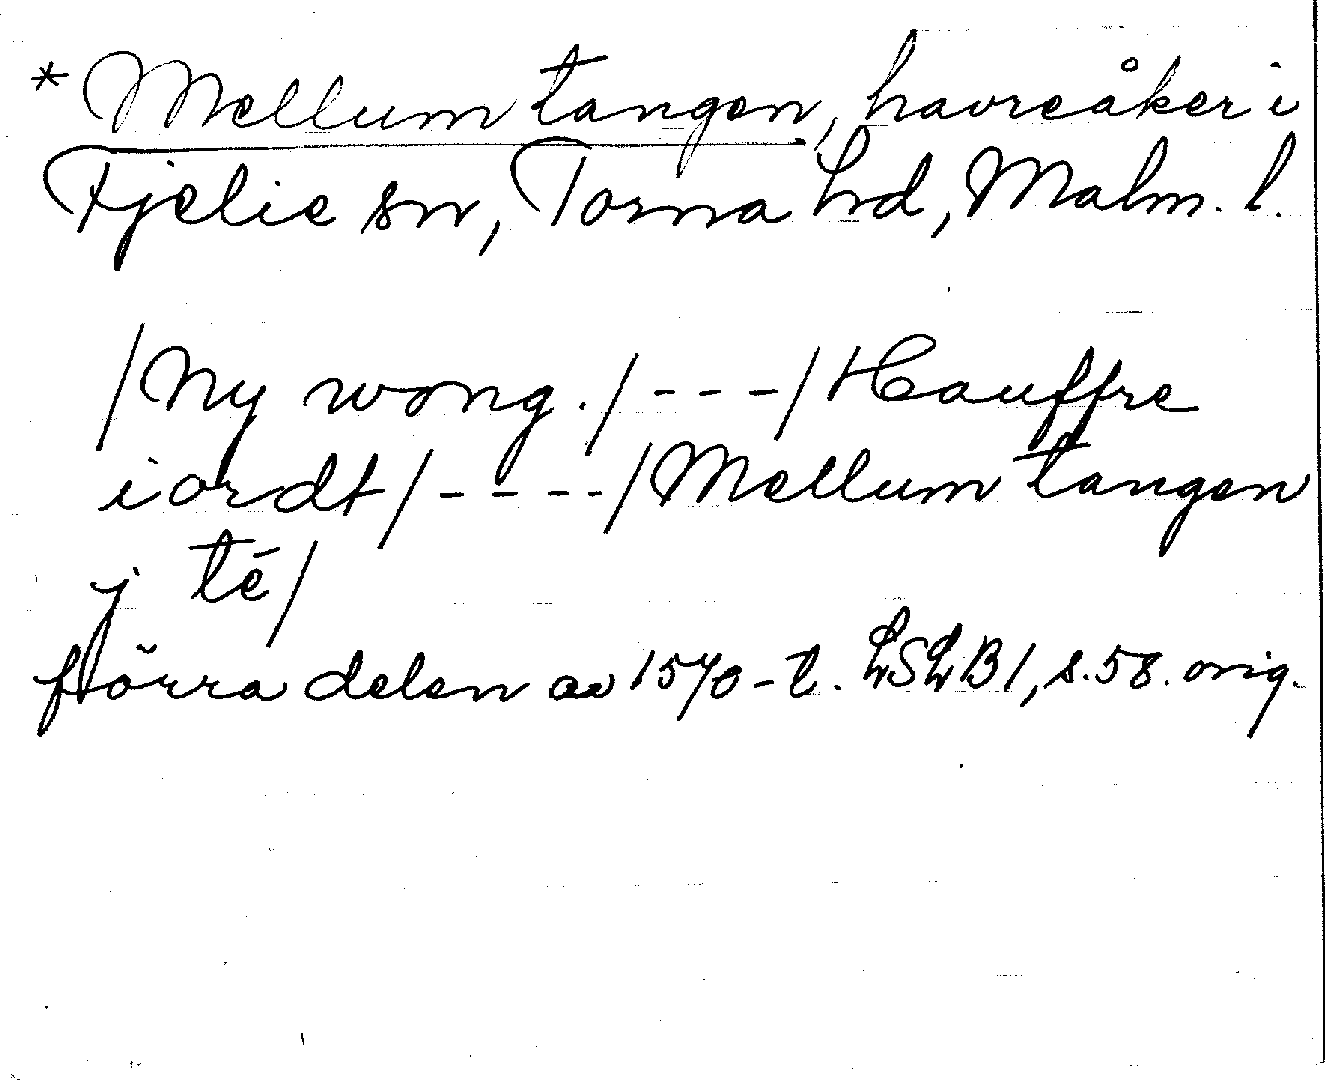 * Mellum tangen, havreåker i
Fjelie sn, Torna hd, Malm. l.
/Ny wong./---/Hauffre
iordt/----/Mellum tangen
j tē/
förra delen av 1570-t. LSLB1, s.58. orig.